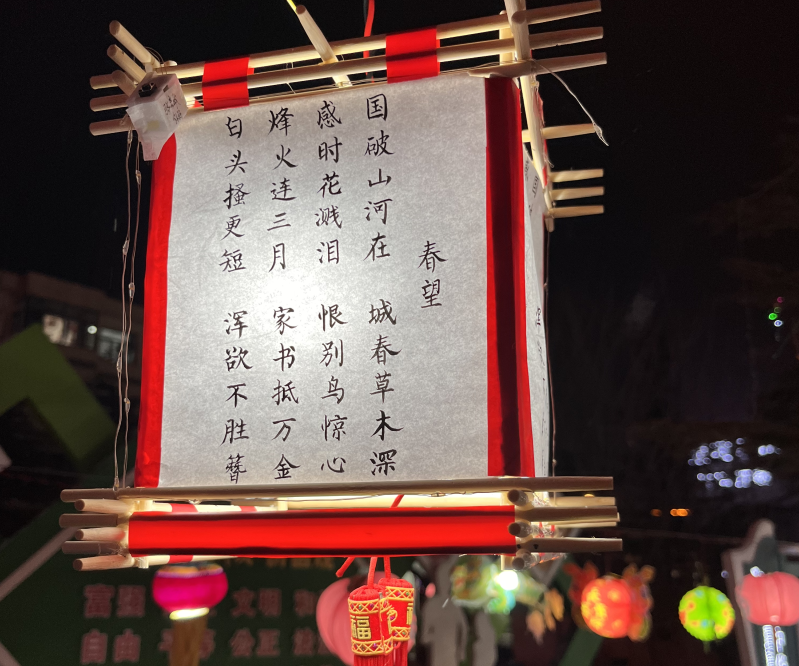 春望
国破山河在 城春草木深
感时花溅泪 恨别鸟惊心
烽火连三月 家书抵万金
白头搔更短 浑欲不胜簪
福
富强 文明
自由 公正